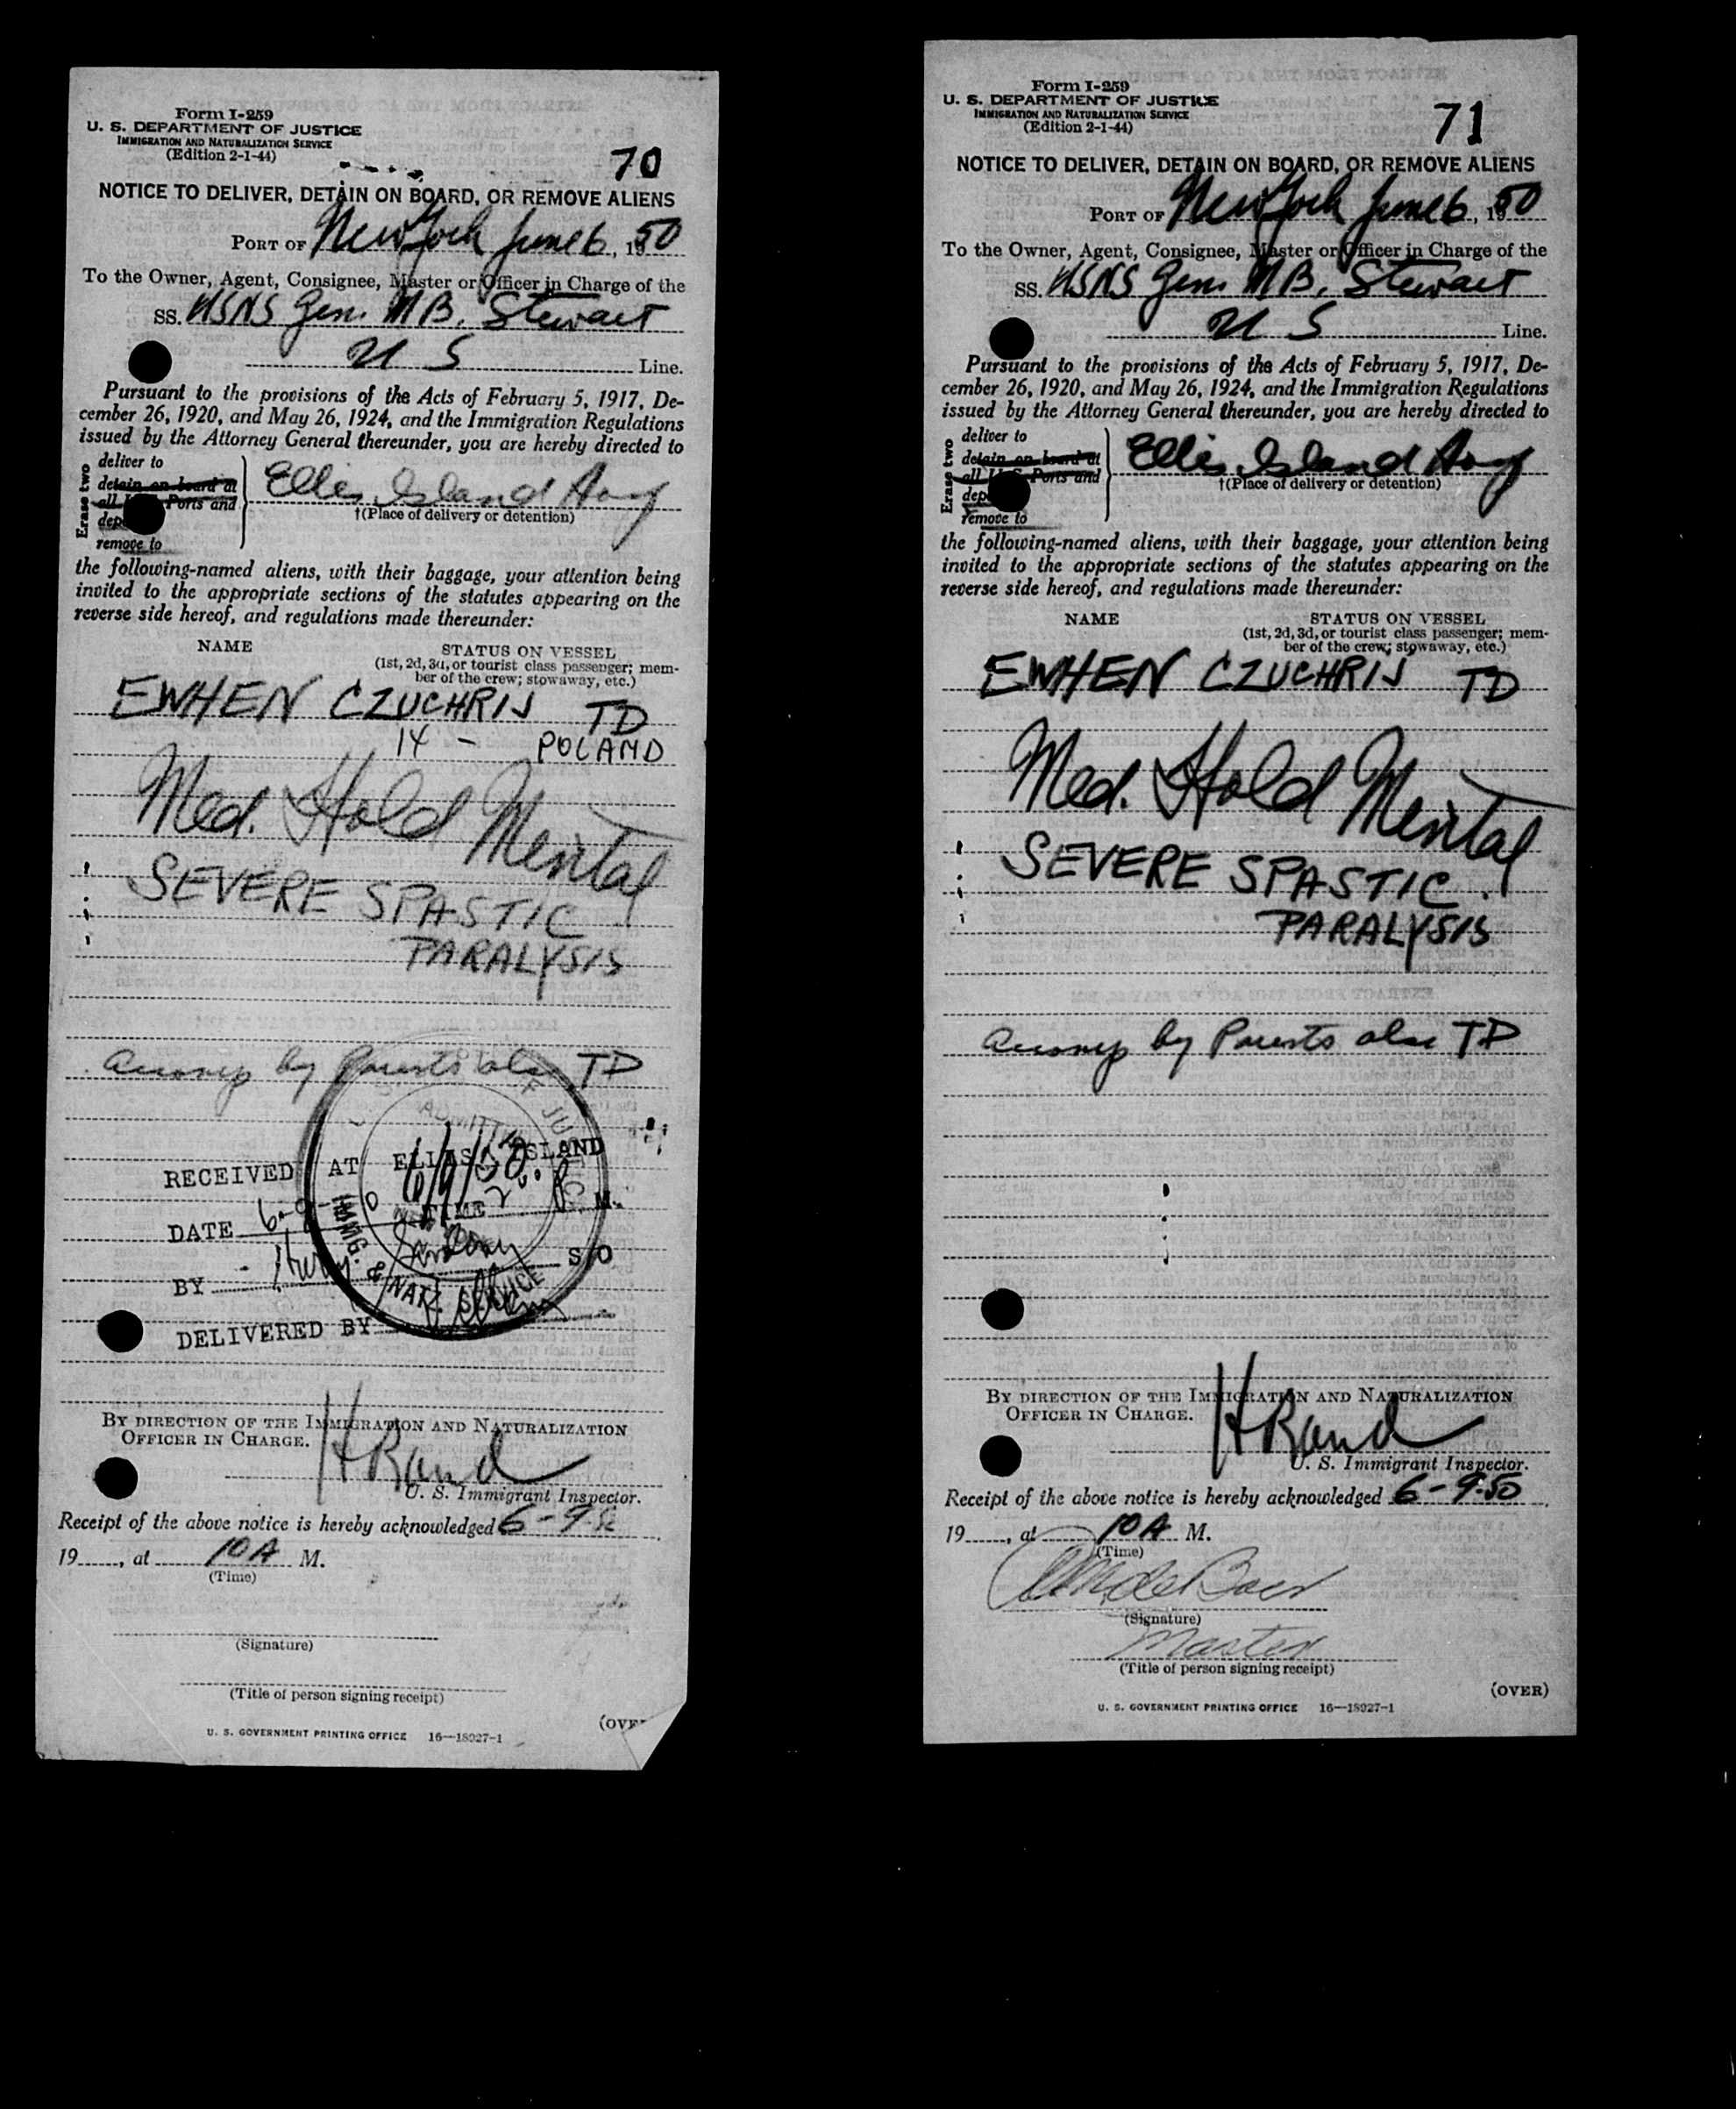 Form I-259
U. S. DEPARTMENT OF JUSTICE
IMMIGRATION AND NATURALIZATION SERVICE
(Edition 2-1-44)
70
NOTICE TO DELIVER, DETAIN ON BOARD, OR REMOVE ALIENS
PORT OF New York June 6, 1950
To the Owner, Agent, Consignee, Master or Officer in Charge of the
SS. USNS Gen. M B. Stewart
U S Line.
Pursuant to the provisions of the Acts of February 5, 1917, De-
cember 26, 1920, and May 26, 1924, and the Immigration Regulations
issued by the Attorney General thereunder, you are hereby directed to
Erase two
deliver to
detain on board at
all Ports and
dep
remove to
Ellis Island
†(Place of delivery or detention)
the following-named aliens, with their baggage, your attention being
invited to the appropriate sections of the statutes appearing on the
reverse side hereof, and regulations made thereunder:
NAME
STATUS ON VESSEL
(1st, 2d, 3d, or tourist class passenger; mem-
ber of the crew; stowaway, etc.)
EWHEN CZUCHRIJ TD
14 - POLAND
Med. Hold Mental
SEVERE SPASTIC
PARALYSIS
accomp by Parents also TD
RECEIVED AT ELLIS ISLAND
DATE 6-9 TIME 2 P. M.
BY S/O
DELIVERED BY
ADMITTED
6/9/50
OF JUSTICE
IMMG. & NATZ. SERVICE
BY DIRECTION OF THE IMMIGRATION AND NATURALIZATION
OFFICER IN CHARGE.
H Rand
U. S. Immigrant Inspector.
Receipt of the above notice is hereby acknowledged 6-9-50
19......, at 10 A M.
(Time)
(Signature)
(Title of person signing receipt)
(OVE
U. S. GOVERNMENT PRINTING OFFICE 16—18927-1
Form I-259
U. S. DEPARTMENT OF JUSTICE
IMMIGRATION AND NATURALIZATION SERVICE
(Edition 2-1-44)
71
NOTICE TO DELIVER, DETAIN ON BOARD, OR REMOVE ALIENS
PORT OF New York June 6, 1950
To the Owner, Agent, Consignee, Master or Officer in Charge of the
SS. USNS Gen. M B. Stewart
U S Line.
Pursuant to the provisions of the Acts of February 5, 1917, De-
cember 26, 1920, and May 26, 1924, and the Immigration Regulations
issued by the Attorney General thereunder, you are hereby directed to
Erase two
deliver to
detain on board at
all U.S. Ports and
dep
remove to
Ellis Island
†(Place of delivery or detention)
the following-named aliens, with their baggage, your attention being
invited to the appropriate sections of the statutes appearing on the
reverse side hereof, and regulations made thereunder:
NAME
STATUS ON VESSEL
(1st, 2d, 3d, or tourist class passenger; mem-
ber of the crew; stowaway, etc.)
EWHEN CZUCHRIJ TD
Med. Hold Mental
SEVERE SPASTIC
PARALYSIS
accomp by Parents also TD
BY DIRECTION OF THE IMMIGRATION AND NATURALIZATION
OFFICER IN CHARGE.
H Rand
U. S. Immigrant Inspector.
Receipt of the above notice is hereby acknowledged 6-9-50
19......, at 10 A M.
(Time)
de Boer
(Signature)
Master
(Title of person signing receipt)
(OVER)
U. S. GOVERNMENT PRINTING OFFICE 16—18927-1